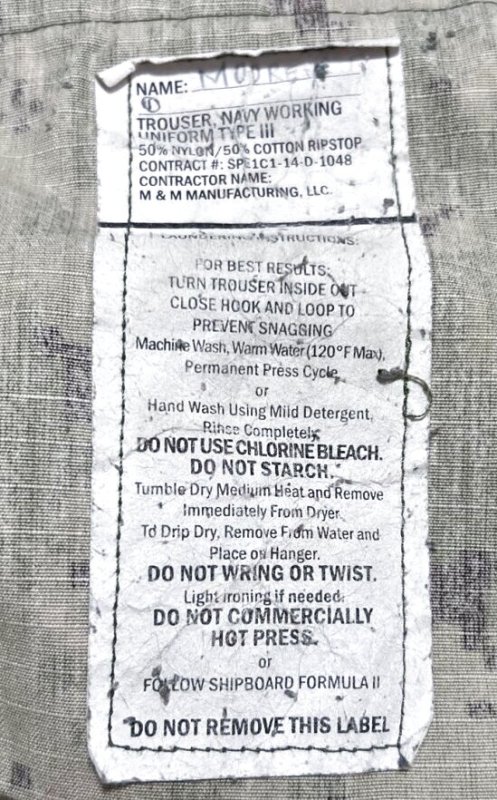 NAME:
TROUSER, NAVY WORKING
UNIFORM TYPE III
50% NYLON/50% COTTON RIPSTOP
CONTRACT #: SPE1C1-14-D-1048
CONTRACTOR NAME:
M & M MANUFACTURING, LLC.
LAUNDERING INSTRUCTIONS:
FOR BEST RESULTS:
TURN TROUSER INSIDE OUT
CLOSE HOOK AND LOOP TO
PREVENT SNAGGING
Machine Wash, Warm Water (120°F Max),
Permanent Press Cycle
or
Hand Wash Using Mild Detergent,
Rinse Completely
DO NOT USE CHLORINE BLEACH.
DO NOT STARCH.
Tumble Dry Medium Heat and Remove
Immediately From Dryer
To Drip Dry, Remove From Water and
Place on Hanger.
DO NOT WRING OR TWIST.
Light ironing if needed.
DO NOT COMMERCIALLY
HOT PRESS.
or
FOLLOW SHIPBOARD FORMULA II
DO NOT REMOVE THIS LABEL